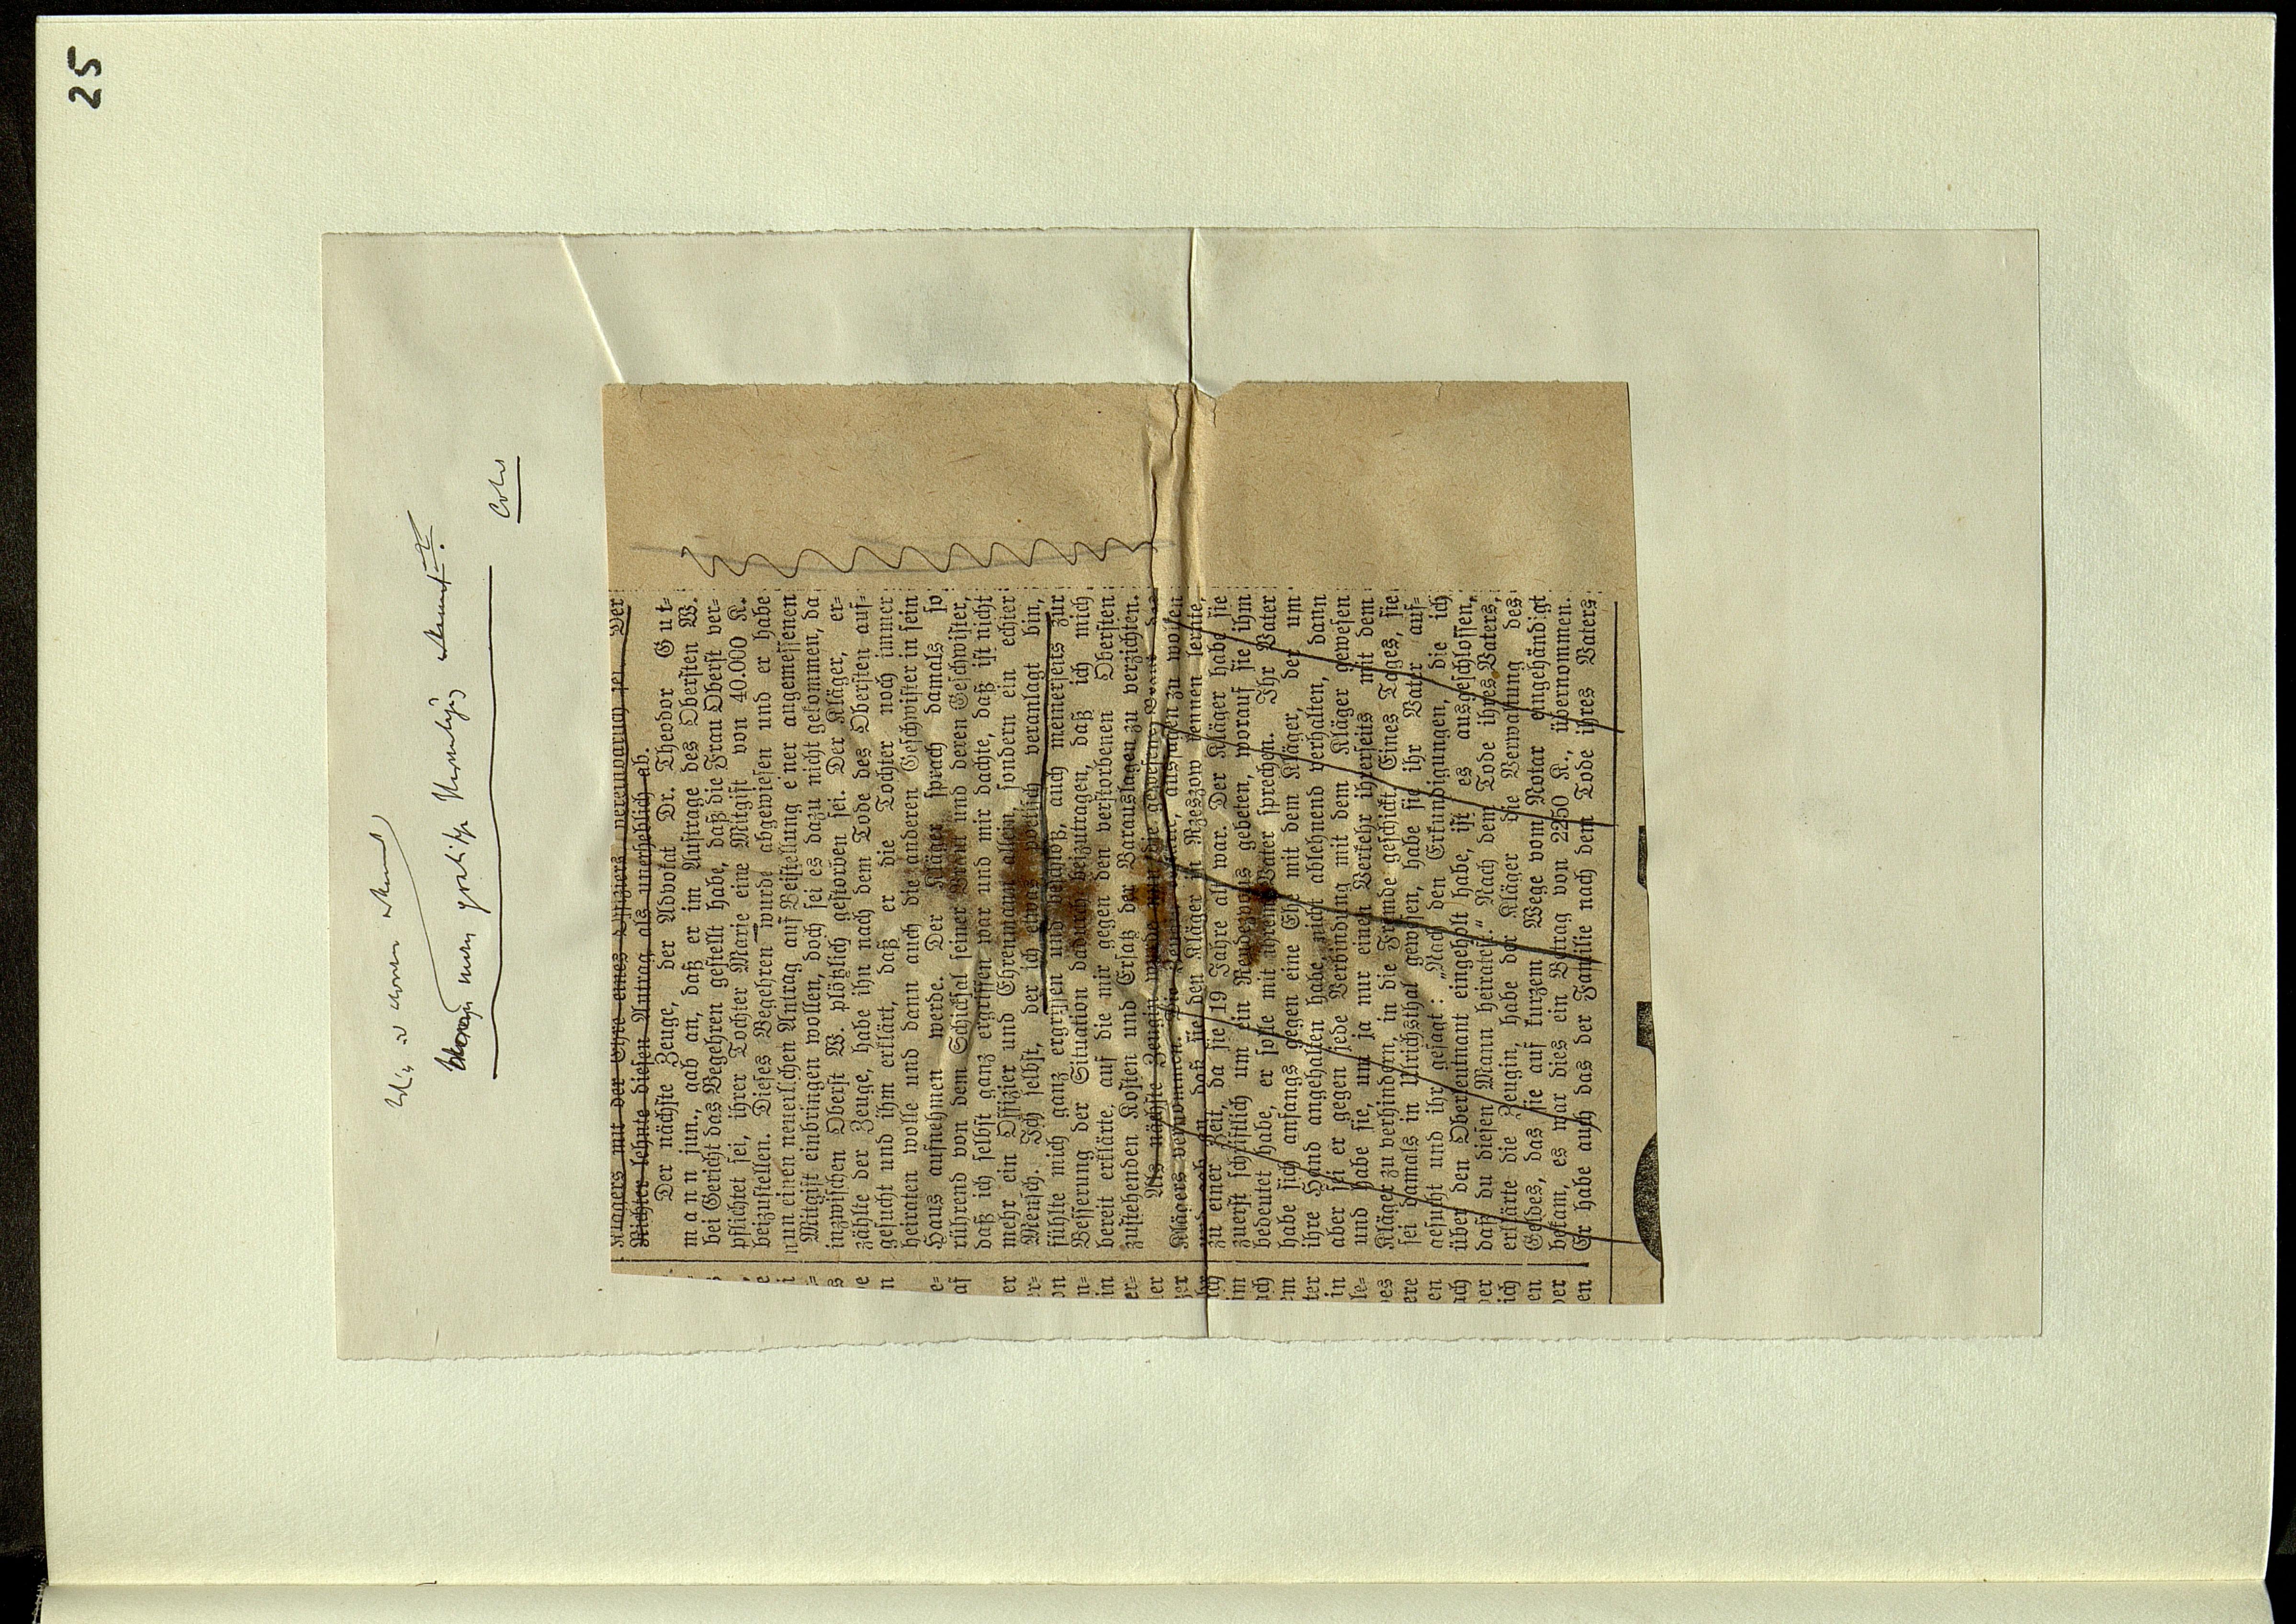 25
Klägers mit der Ehre eines Offiziers vereinbarlich sei. Der
Richter lehnte diesen Antrag als unerheblich ab.
Der nächste Zeuge, der Advokat Dr. Theodor Gut-
mann jun., gab an, daß er im Auftrage des Obersten W.
bei Gericht das Begehren gestellt habe, daß die Frau Oberst ver-
pflichtet sei, ihrer Tochter Marie eine Mitgift von 40.000 K.
beizustellen. Dieses Begehren wurde abgewiesen und er habe
nun einen neuerlichen Antrag auf Beistellung einer angemessenen
Mitgift einbringen wollen, doch sei es dazu nicht gekommen, da
inzwischen Oberst W. plötzlich gestorben sei. Der Kläger, er-
zählte der Zeuge, habe ihn nach dem Tode des Obersten auf-
gesucht und ihm erklärt, daß er die Tochter noch immer
heiraten wolle und dann auch die anderen Geschwister in sein
Haus aufnehmen werde. Der Kläger sprach damals so
rührend von dem Schicksal seiner Braut und deren Geschwister,
daß ich selbst ganz ergriffen war und mir dachte, daß ist nicht
mehr ein Offizier und Ehrenmann allein, sondern ein echter
Mensch. Ich selbst, der ich etwas poetisch veranlagt bin,
fühlte mich ganz ergriffen und beschloß, auch meinerseits zur
Besserung der Situation dadurch beizutragen, daß ich mich
bereit erklärte, auf die mir gegen den verstorbenen Obersten
zustehenden Kosten und Ersatz der Barauslagen zu verzichten.
Als nächste Zeugin wurde nun die gewesene Braut des
Klägers vernommen. Die Zeugin erklärte, aussagen zu wollen
und gab an, daß sie den Kläger in Rzeszow kennen lernte,
zu einer Zeit, da sie 19 Jahre alt war. Der Kläger habe sie
zuerst schriftlich um ein Rendezvous gebeten, worauf sie ihm
bedeutet habe, er solle mit ihrem Vater sprechen. Ihr Vater
habe sich anfangs gegen eine Ehe mit dem Kläger, der um
ihre Hand angehalten habe, nicht ablehnend verhalten, dann
aber sei er gegen jede Verbindung mit dem Kläger gewesen
und habe sie, um ja nur einen Verkehr ihrerseits mit dem
Kläger zu verhindern, in die Fremde geschickt. Eines Tages, sie
sei damals in Ulrichsthal gewesen, habe sie ihr Vater auf-
gesucht und ihr gesagt: „Nach den Erkundigungen, die ich
über den Oberleutnant eingeholt habe, ist es ausgeschlossen,
daß du diesen Mann heiratest.“ Nach dem Tode ihres Vaters,
erklärte die Zeugin, habe der Kläger die Verwaltung des
Geldes, das sie auf kurzem Wege vom Notar eingehändigt
bekam, es war dies ein Betrag von 2250 K., übernommen.
Er habe auch das der Familie nach dem Tode ihres Vaters